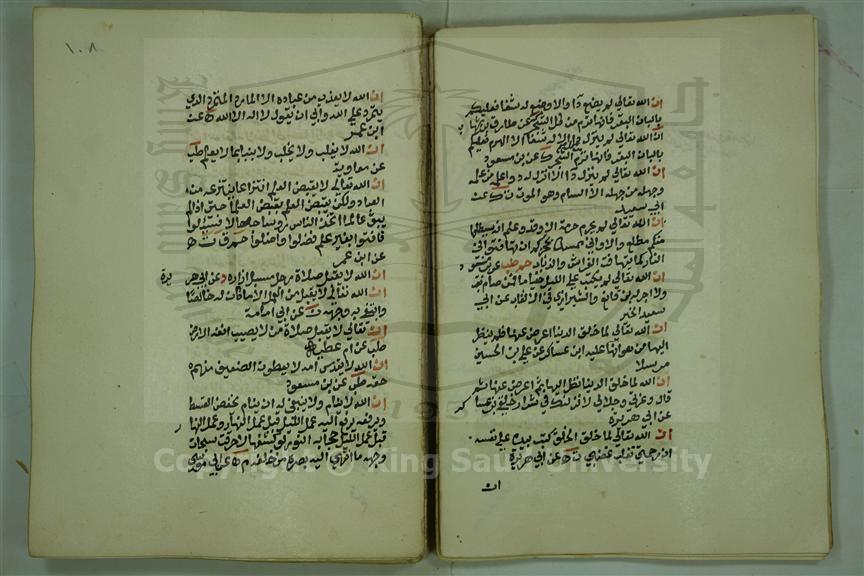 ان الله تعالى لم يضع داء الا وضع له شفاء فعليكم
بالبان البقر فانها ترم من كل الشجر حم عن طارق بن شهاب
ان الله تعالى لم ينزل داء الا انزل له شفاء الا الهرم فعليكم
بالبان البقر فانها ترم من كل الشجر ك عن بن مسعود
ان الله تعالى لم ينزل داء الا انزل له دواء علمه من علمه
وجهله من جهله الا السام وهو الموت ك عن
ابي سعيد
ان الله تعالى لم يحرم حرمة الا وقد علم انه سيطلعها
منكم مطلع الا واني ممسك بحجزكم ان تهافتوا في
النار كما يتهافت الفراش والذباب حم طب عن بن مسعود
ان الله تعالى لم يكتب على الليل صياما فمن صام تعنى
ولا اجر له بن قانع والشيرازي في الالقاب عن ابي
سعيد الخير
ان الله تعالى لما خلق الدنيا اعرض عنها فلم ينظر
اليها من هوانها عليه ابن عساكر عن علي بن الحسين
مرسلا
ان الله لما خلق الدنيا نظر اليها ثم اعرض عنها ثم
قال وعزتي وجلالي لا انزلتك الا في شرار خلقي بن عساكر
عن ابي هريرة
ان الله تعالى لما خلق الخلق كتب بيده على نفسه
ان رحمتي تغلب غضبي ت ه عن ابي هريرة
ان
١٠٨
ان الله لا يعذب من عباده الا المارد المتمرد الذي
يتمرد على الله وابى ان يقول لا اله الا الله ه عن
ابن عمر
ان الله لا يغلب ولا يخلب ولا ينبأ بما لا يعلم طب
عن معاوية
ان الله تعالى لا يقبض العلم انتزاعا ينتزعه من
العباد ولكن يقبض العلم بقبض العلماء حتى اذا لم
يبق عالما اتخذ الناس رؤساء جهالا فسئلوا
فافتوا بغير علم فضلوا واضلوا حم ق ت ه
عن ابن عمر
ان الله لا يقبل صلاة رجل مسبل ازاره د عن ابي هريرة
ان الله تعالى لا يقبل من العمل الا ما كان له خالصا
وابتغي به وجهه ن عن ابي امامة
ان الله تعالى لا يقبل صلاة من لا يصيب انفه الارض
طب عن ام عطية
ان الله لا يقدس امة لا يعطون الضعيف منهم
حقه طب عن بن مسعود
ان الله لا ينام ولا ينبغي له ان ينام يخفض القسط
ويرفعه يرفع اليه عمل الليل قبل عمل النهار وعمل النهار
قبل عمل الليل حجابه النور لو كشفها لاحرقت سبحات
وجهه ما انتهى اليه بصره من خلقه م ه عن ابي موسى
Copyright © King Saud University